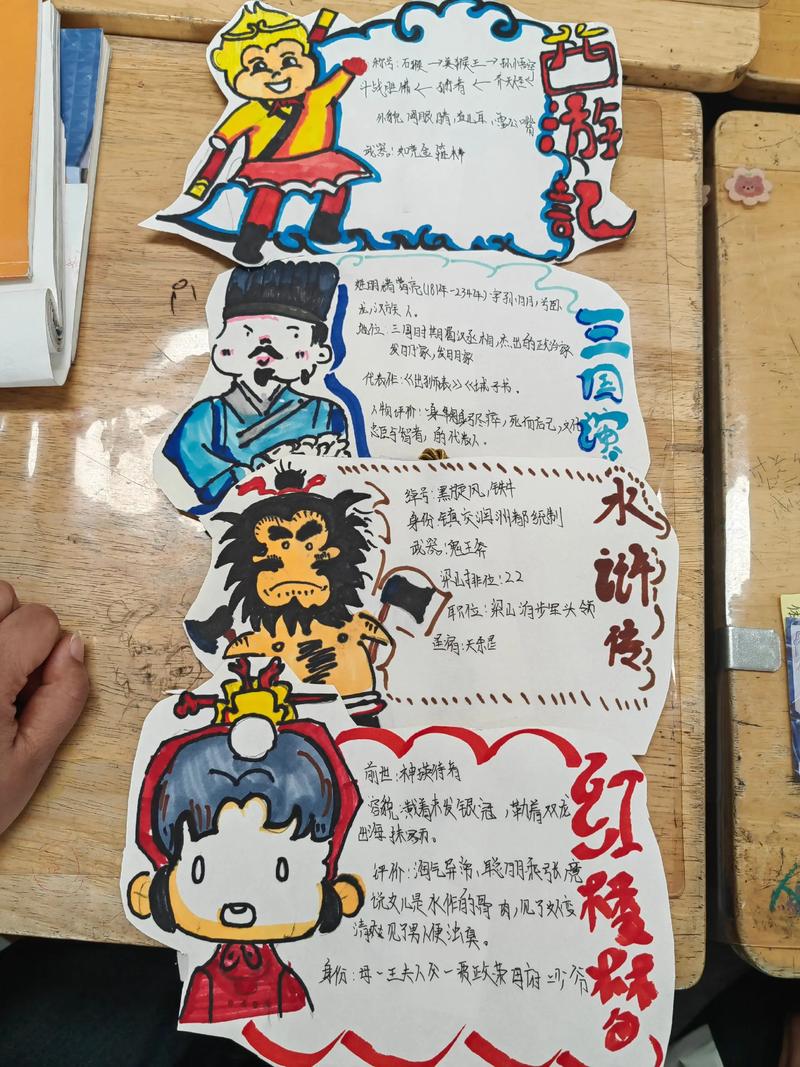 西游记
称号：石猴→美猴王→孙悟空
斗战胜佛←行者←齐天大圣
外貌：圆眼睛，查儿耳，雷公嘴
武器：如意金箍棒
三国演
姓名：诸葛亮(181年-234年)字孔明，号卧
龙，汉族人。
地位：三国时期蜀汉丞相，杰出的政治家
发明家，发明家
代表作：《出师表》《诫子书》
人物评价：鞠躬尽瘁，死而后已，
忠臣与智者，的代表人。
水浒传
绰号：黑旋风，铁牛
身份：镇江润州都统制
武器：鬼王斧
梁山排位：22
职位：梁山 步军头领
星宿：天杀星
红楼梦
前世：神瑛侍者
容貌：戴着束发银冠，勒着双龙
出海抹额。
评价：淘气异常，聪明乖张，竟
说女儿是水作的骨肉，见了女便
清爽见了男人便浊臭。
身份：母-王夫人父-贾政荣国府二少爷